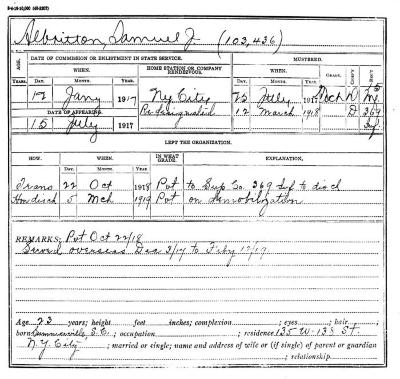 5-4-18-10,000 (48-2807)
Albritton, Samuel J (103,436)
AGE. DATE OF COMMISSION OR ENLISTMENT IN STATE SERVICE. MUSTERED.
WHEN. HOME STATION OR COMPANY RENDEZVOUS. WHEN. GRADE. COMP'Y REG'T
YEARS. DAY. MONTH. YEAR DAY. MONTH. YEAR
17 Jany 1917 N.Y. City 25 July 1917 D 15 N.Y.
DATE OF APPEARING. Redesignated 12 March 1918 D 369
15 July 1917 Inf
LEFT THE ORGANIZATION.
HOW. WHEN. IN WHAT GRADE. EXPLANATION,
DAY. MONTH. YEAR
Trans 22 Oct 1918 Pvt to Sup Co. 369 Inf to disch
Hon disch 5 Mch 1919 Pvt on demobilization
REMARKS: Pvt Oct 22/18
Served overseas Dec 3/17 to Feby 12/19
Age 23 years; height feet inches; complexion ; eyes ; hair ,
born Summerville, S.C. ; occupation ; residence 135 W-138 St.
N.Y. City ; married or single; name and address of wife or (if single) of parent or guardian
; relationship